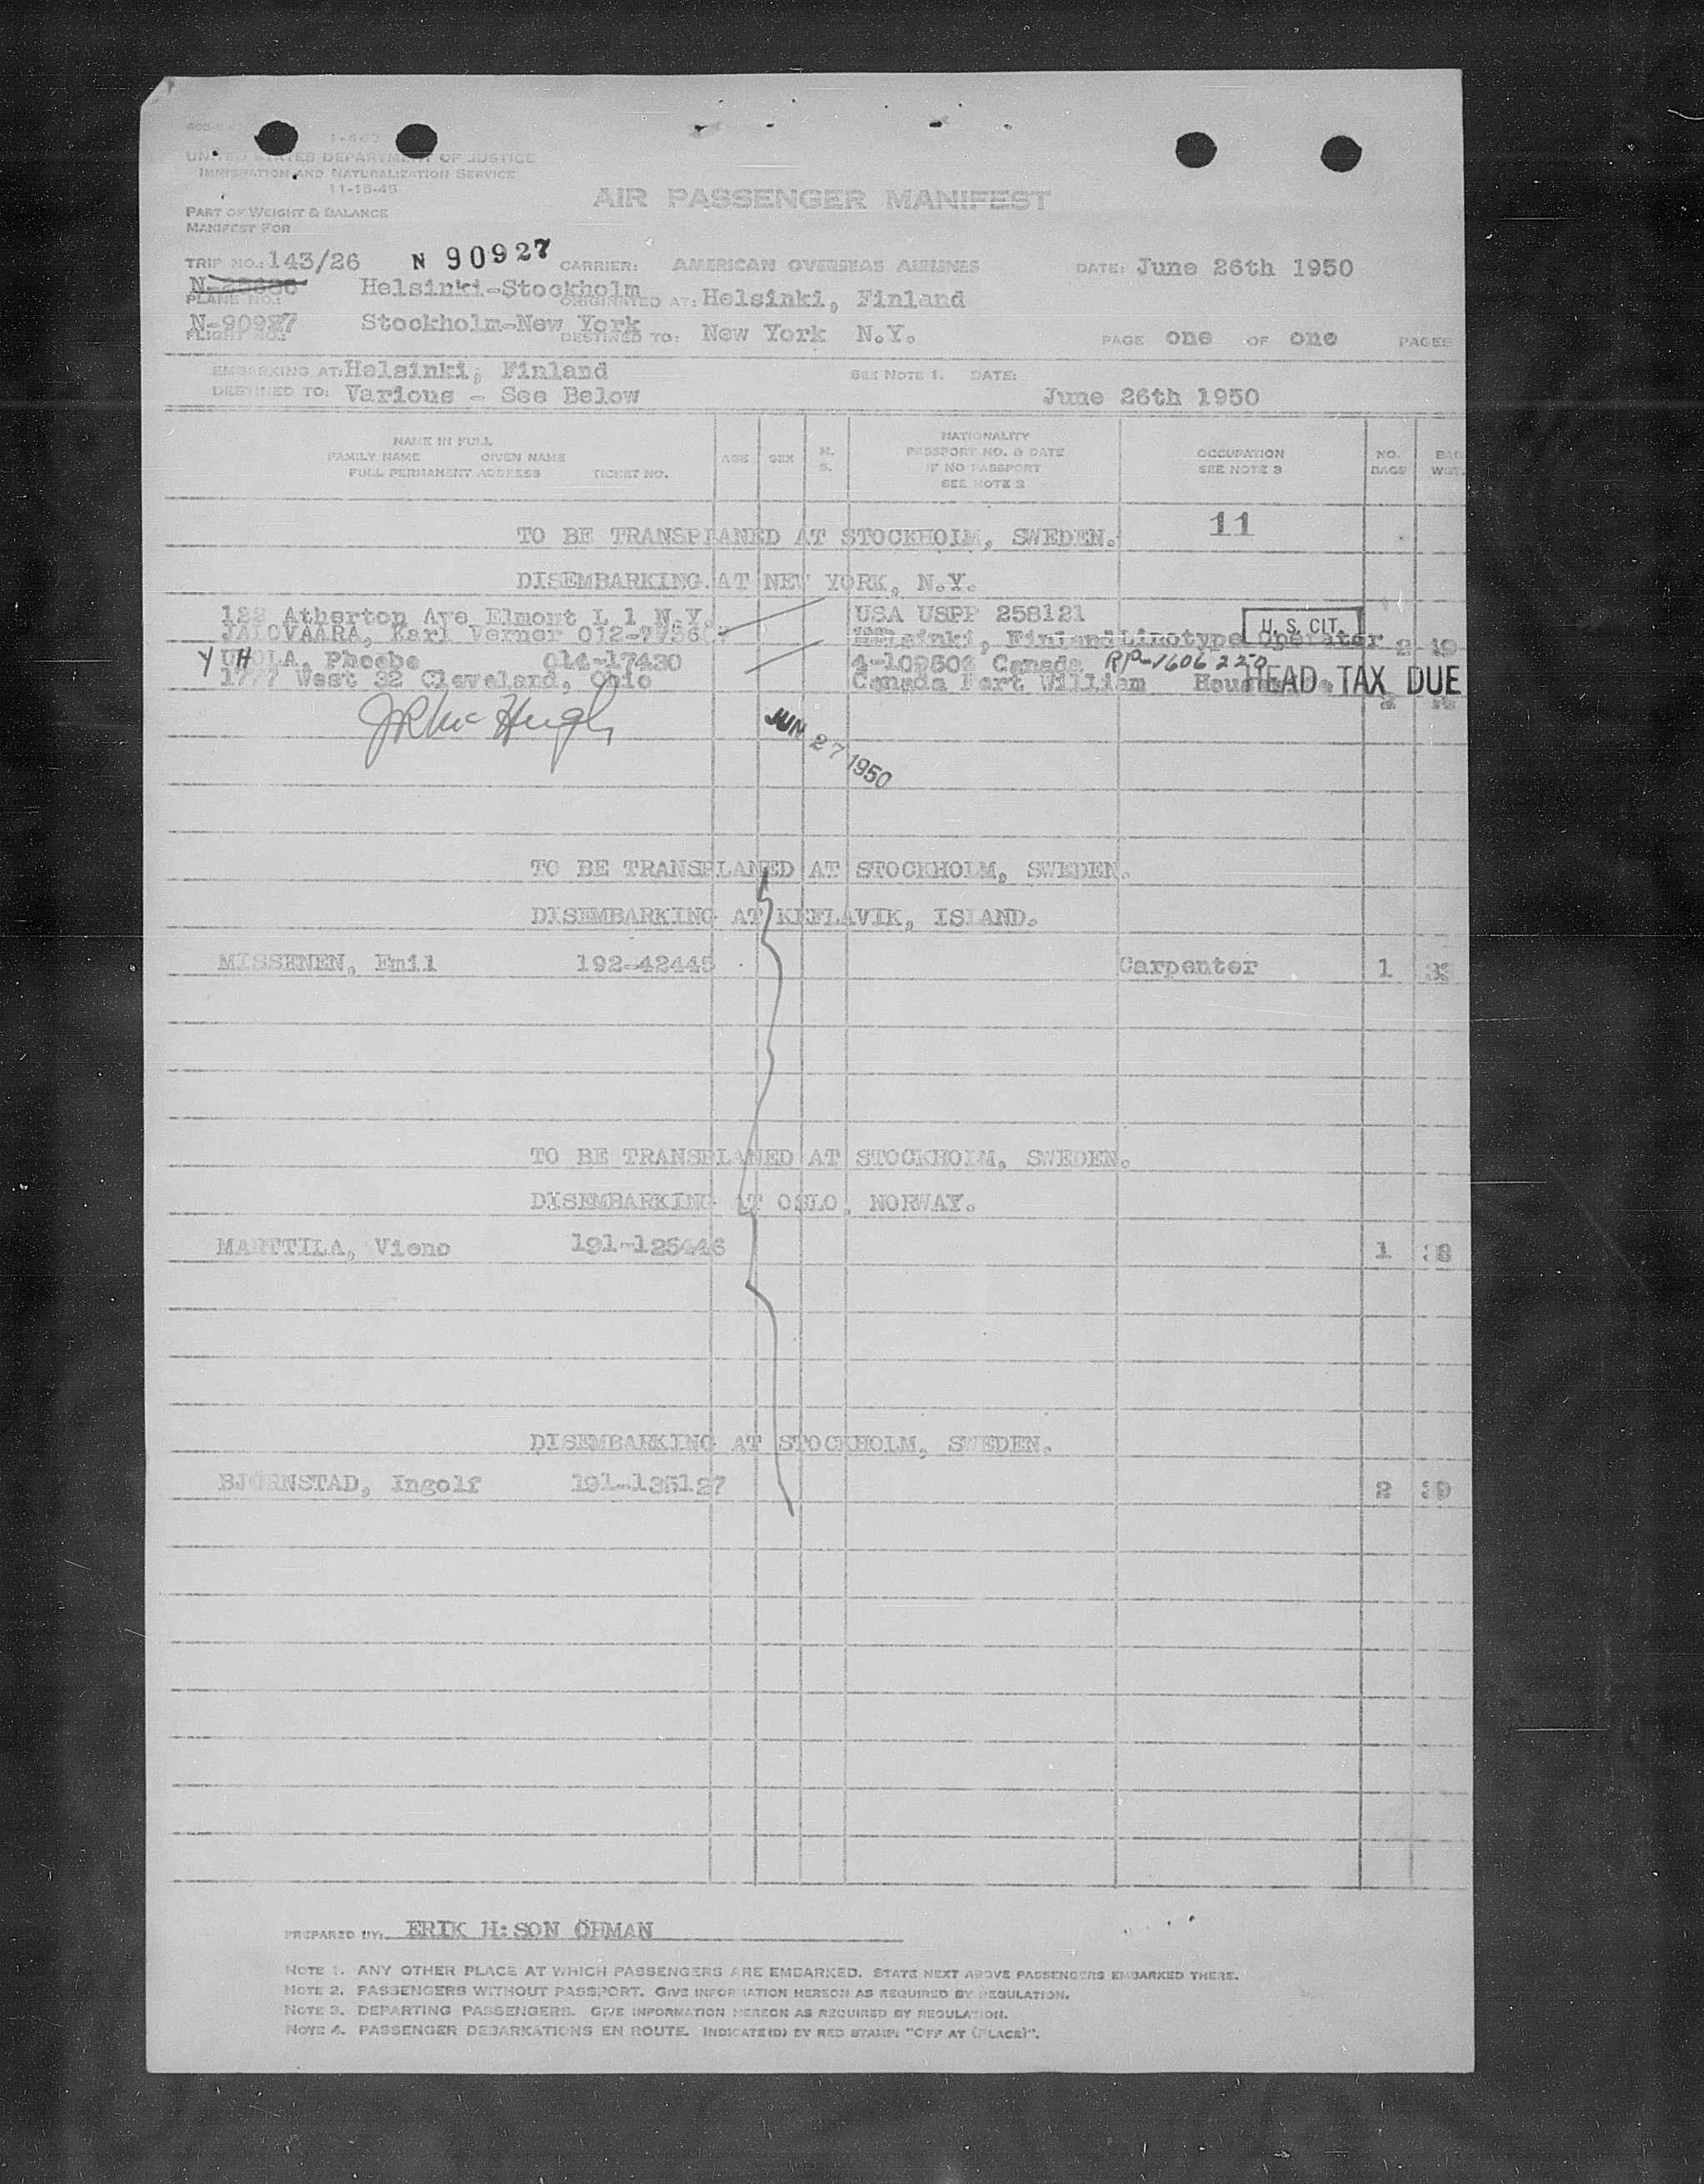 I-467
UNITED STATES DEPARTMENT OF JUSTICE
IMMIGRATION AND NATURALIZATION SERVICE
11-15-45
AIR PASSENGER MANIFEST
PART OF WEIGHT & BALANCE
MANIFEST FOR
TRIP NO.: 143/26 N 90927 CARRIER: AMERICAN OVERSEAS AIRLINES DATE: June 26th 1950
PLANE NO.: Helsinki-Stockholm ORIGINATED AT: Helsinki, Finland
N-90927 Stockholm-New York
FLIGHT NO.: DESTINED TO: New York N.Y. PAGE one OF one PAGES
EMBARKING AT: Helsinki, Finland SEE NOTE 1. DATE:
DESTINED TO: Various - See Below June 26th 1950
NAME IN FULL
FAMILY NAME GIVEN NAME
FULL PERMANENT ADDRESS TICKET NO.
AGE SEX M. S.
NATIONALITY
PASSPORT NO. & DATE
IF NO PASSPORT
SEE NOTE 2
OCCUPATION
SEE NOTE 3
NO. BAGS
BAG WGT.
TO BE TRANSPLANED AT STOCKHOLM, SWEDEN. 11
DISEMBARKING AT NEW YORK, N.Y.
122 Atherton Ave Elmont L I N.Y. USA USPP 258121 U. S. CIT.
JALOVAARA, Karl Verner Helsinki, Finland Linotype Operator 2 19
Y UHOLA, Phoebe 014-17430 Canada RP-1606220
West 32 Cleveland, Ohio Canada Fort William HEAD TAX DUE
JR McHugh JUN 27 1950
TO BE TRANSPLANED AT STOCKHOLM, SWEDEN.
DISEMBARKING AT KEFLAVIK, ISLAND.
MISSENEN, Emil 192-42445 Carpenter 1 33
TO BE TRANSPLANED AT STOCKHOLM, SWEDEN.
DISEMBARKING AT OSLO, NORWAY.
MARTTILA, Vieno 191-125446 1 38
DISEMBARKING AT STOCKHOLM, SWEDEN.
BJORNSTAD, Ingolf 191-135127 2 39
PREPARED BY: ERIK H:SON ÖHMAN
NOTE 1. ANY OTHER PLACE AT WHICH PASSENGERS ARE EMBARKED. STATE NEXT ABOVE PASSENGERS EMBARKED THERE.
NOTE 2. PASSENGERS WITHOUT PASSPORT. GIVE INFORMATION HEREON AS REQUIRED BY REGULATION.
NOTE 3. DEPARTING PASSENGERS. GIVE INFORMATION HEREON AS REQUIRED BY REGULATION.
NOTE 4. PASSENGER DEBARKATIONS EN ROUTE. INDICATE(D) BY RED STAMP: "OFF AT (PLACE)".